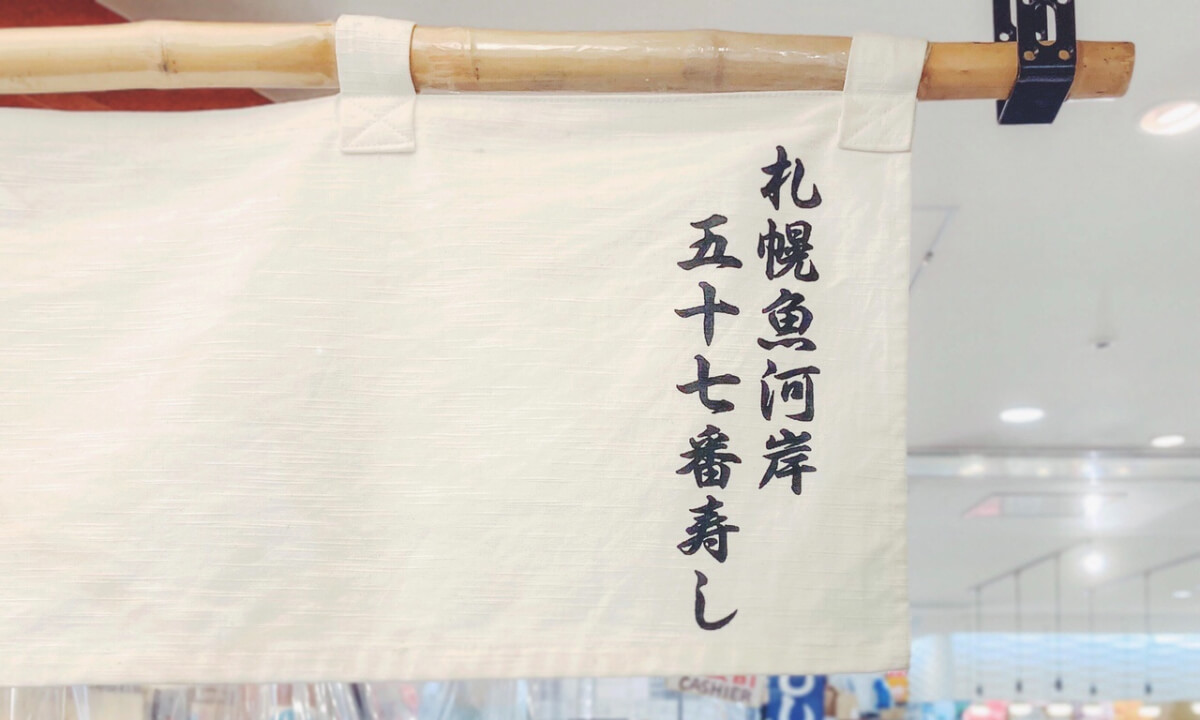 札幌魚河岸
五十七番寿し
CASHIER